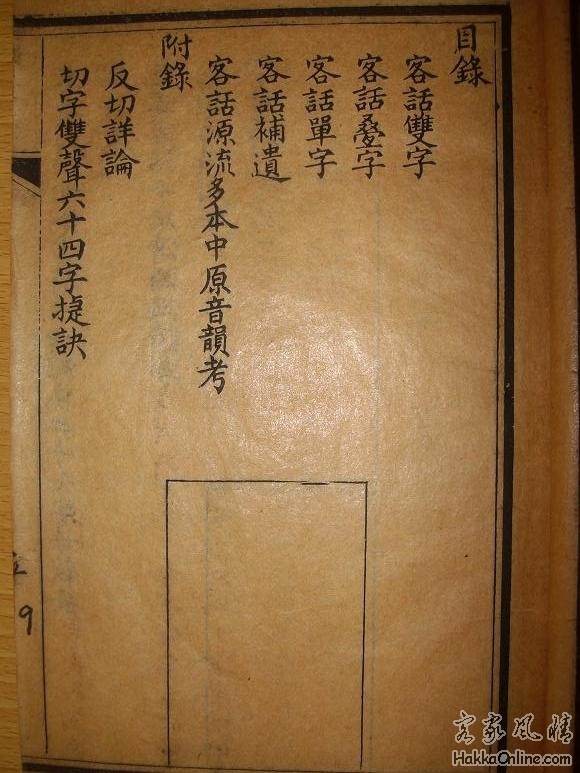 目錄
客話雙字
客話疊字
客話單字
客話補遺
客話源流多本中原音韻考
附錄
反切詳論
切字雙聲六十四字捷訣
9
客家風情
HakkaOnline.com